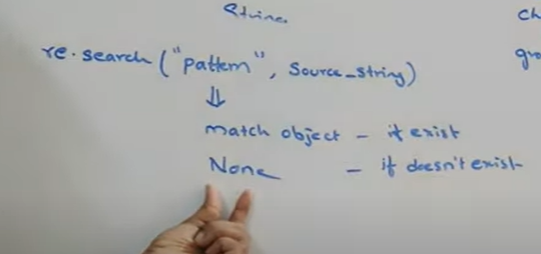 String
re.search ("pattern", Source_string)
⇓
match object - if exist
None - if doesn't exist